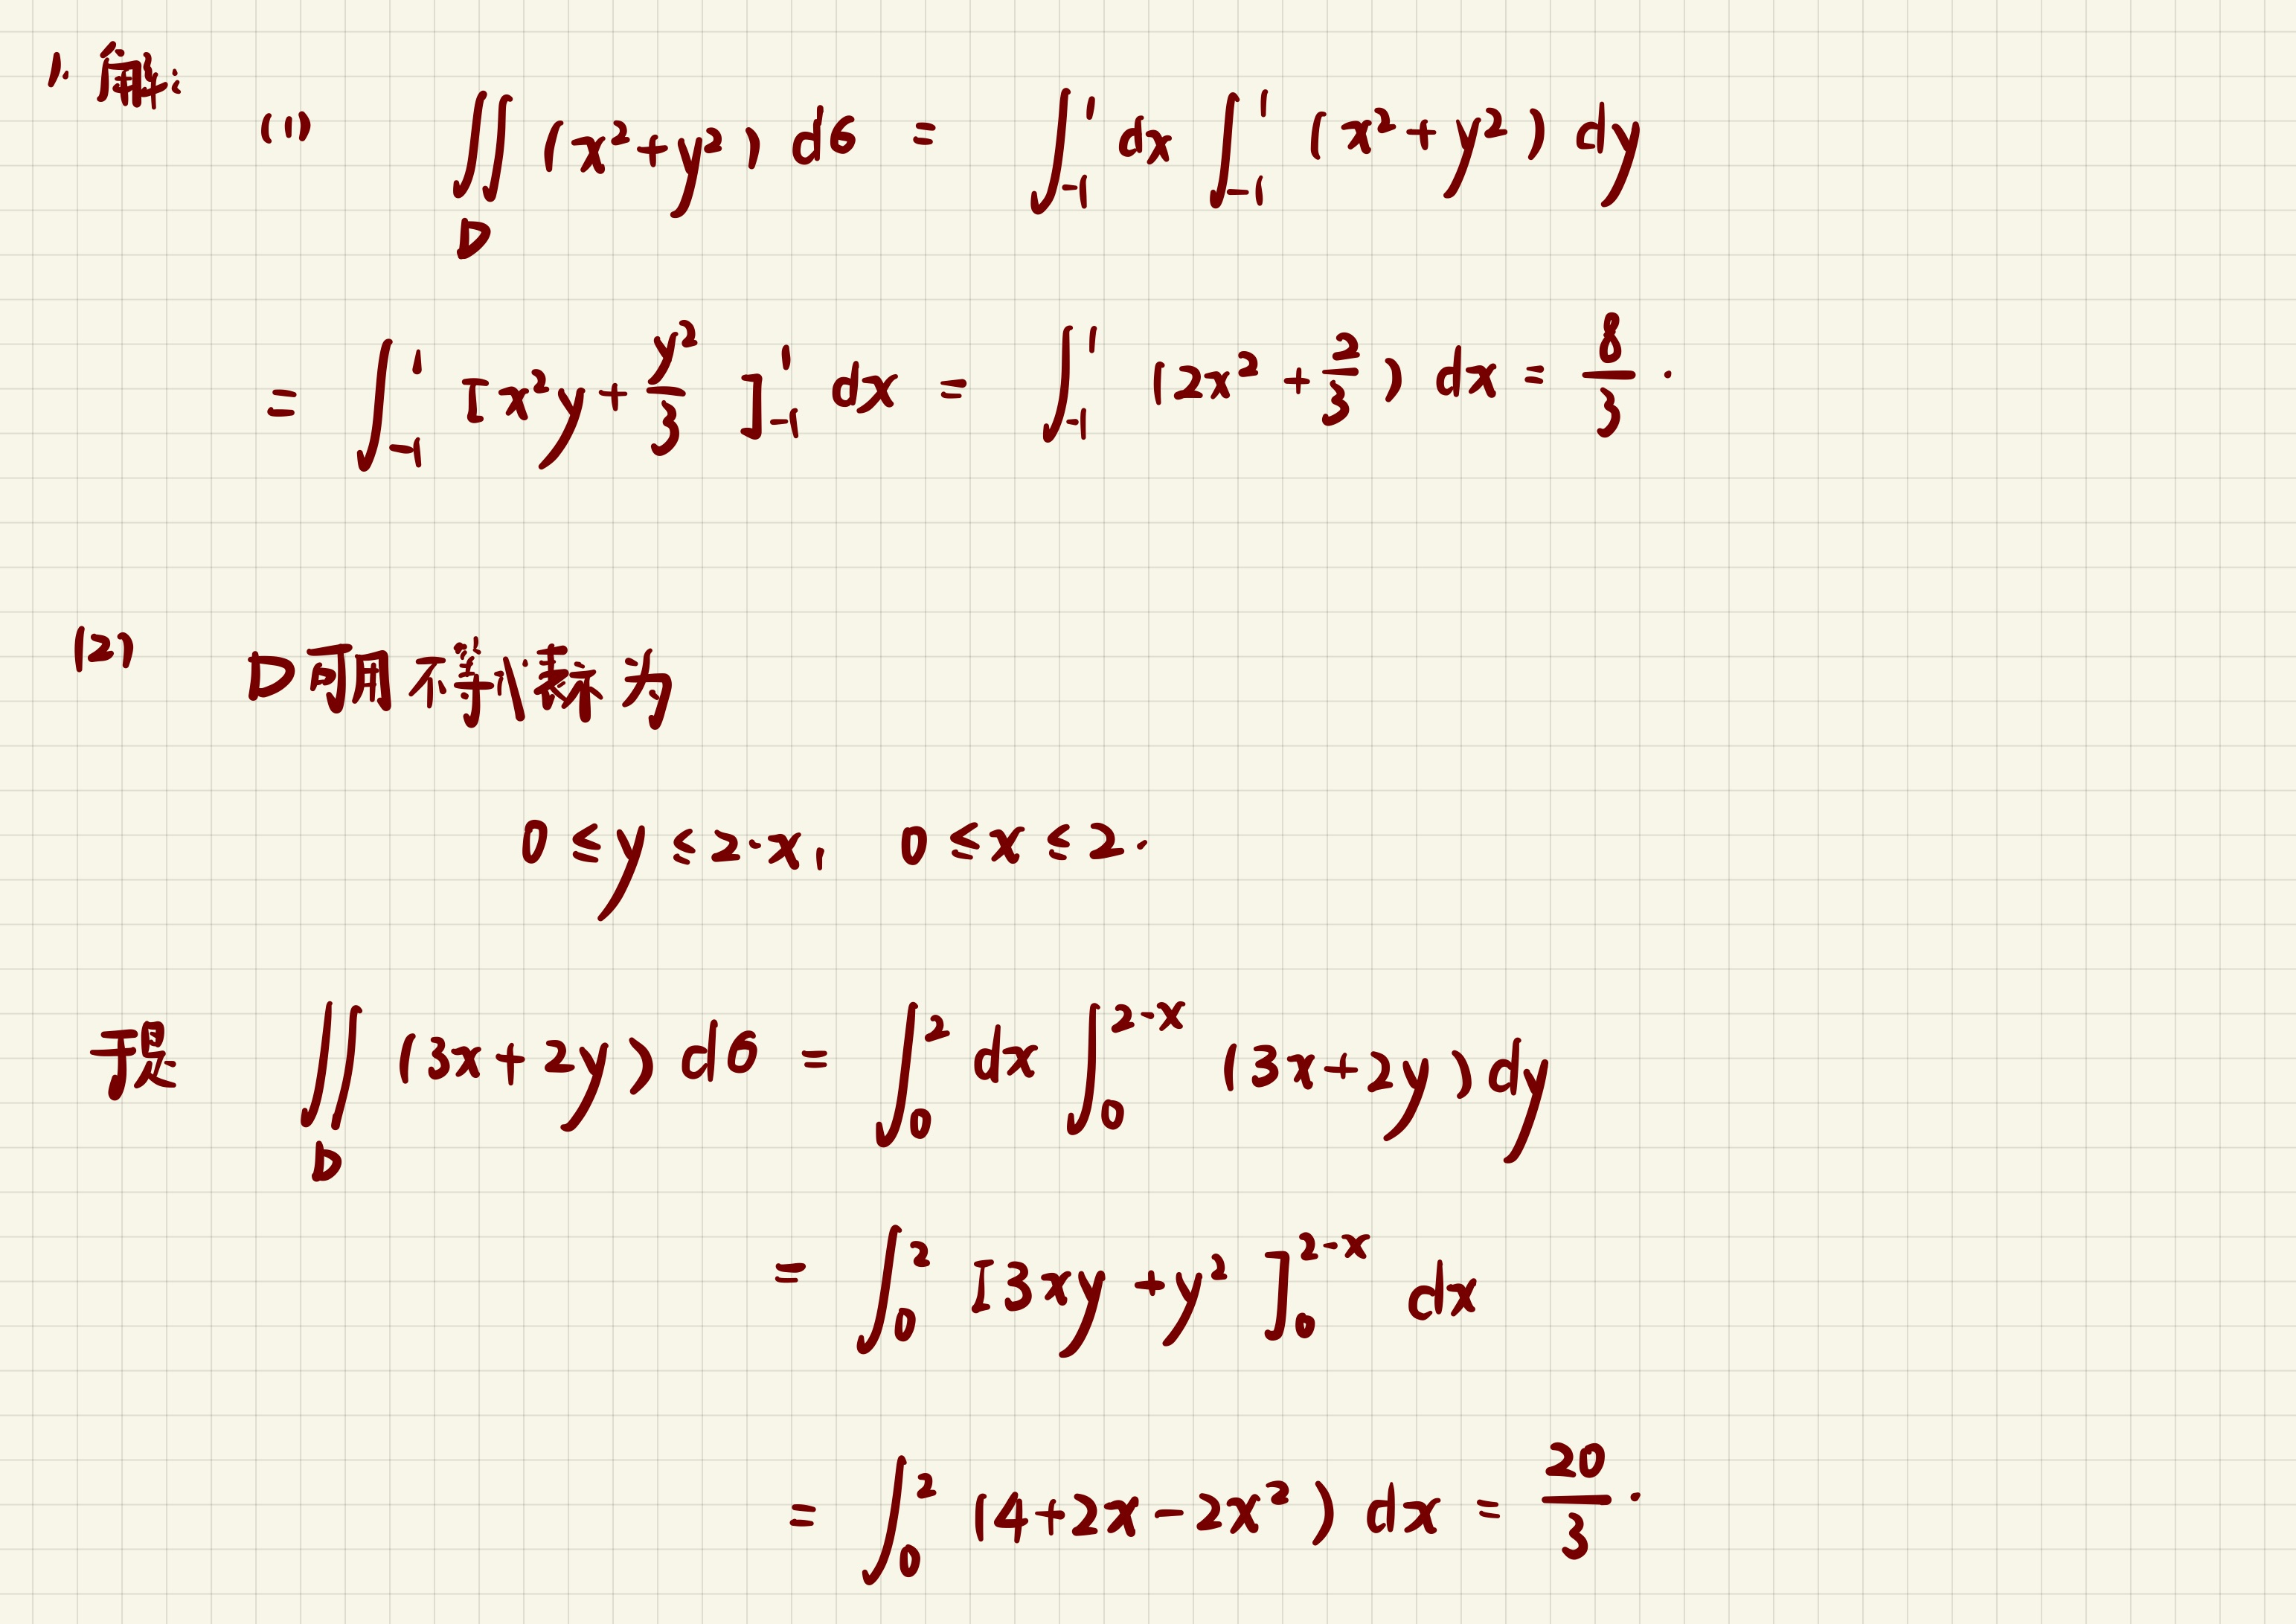 1. 解:
(1) ∬_D (x²+y²) dσ = ∫_{-1}^{1} dx ∫_{-1}^{1} (x²+y²) dy
= ∫_{-1}^{1} [x²y + y²/3]_{-1}^{1} dx = ∫_{-1}^{1} (2x² + 2/3) dx = 8/3.
(2) D可用不等式表示为
0 ≤ y ≤ 2-x, 0 ≤ x ≤ 2.
于是 ∬_D (3x+2y) dσ = ∫_0^2 dx ∫_0^{2-x} (3x+2y) dy
= ∫_0^2 [3xy + y²]_0^{2-x} dx
= ∫_0^2 (4+2x-2x²) dx = 20/3.